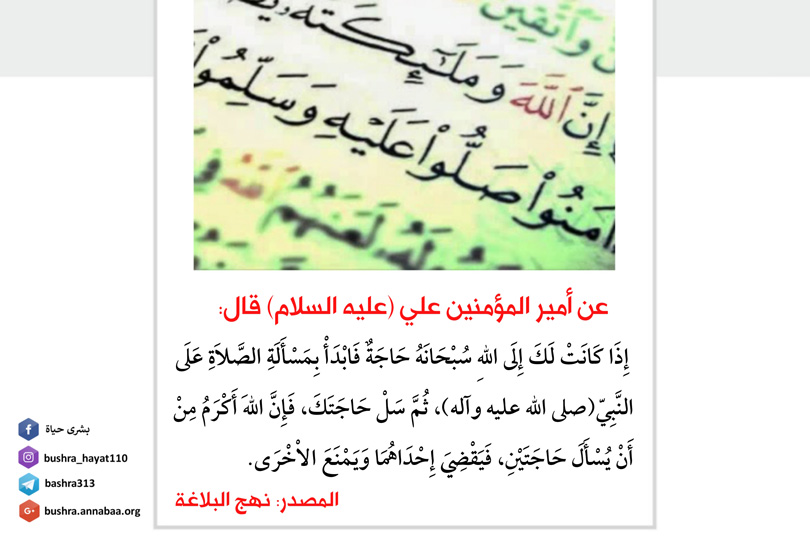 وَٱتَّقِينَ
إِنَّ ٱللَّهَ وَمَلَٰٓئِكَتَهُۥ
ءَامَنُوا۟ صَلُّوا۟ عَلَيْهِ وَسَلِّمُوا۟
لَعَنَهُمُ ٱللَّهُ فِى
عن أمير المؤمنين علي (عليه السلام) قال:
إِذَا كَانَتْ لَكَ إِلَى اللهِ سُبْحَانَهُ حَاجَةٌ فَابْدَأْ بِمَسْأَلَةِ الصَّلاَةِ عَلَى
النَّبِيّ(صلى الله عليه وآله)، ثُمَّ سَلْ حَاجَتَكَ، فَإِنَّ اللهَ أَكْرَمُ مِنْ
أَنْ يُسْأَلَ حَاجَتَيْنِ، فَيَقْضِيَ إِحْدَاهُمَا وَيَمْنَعَ الأْخْرَى.
المصدر: نهج البلاغة
بشرى حياة
bushra_hayat110
bashra313
bushra.annabaa.org